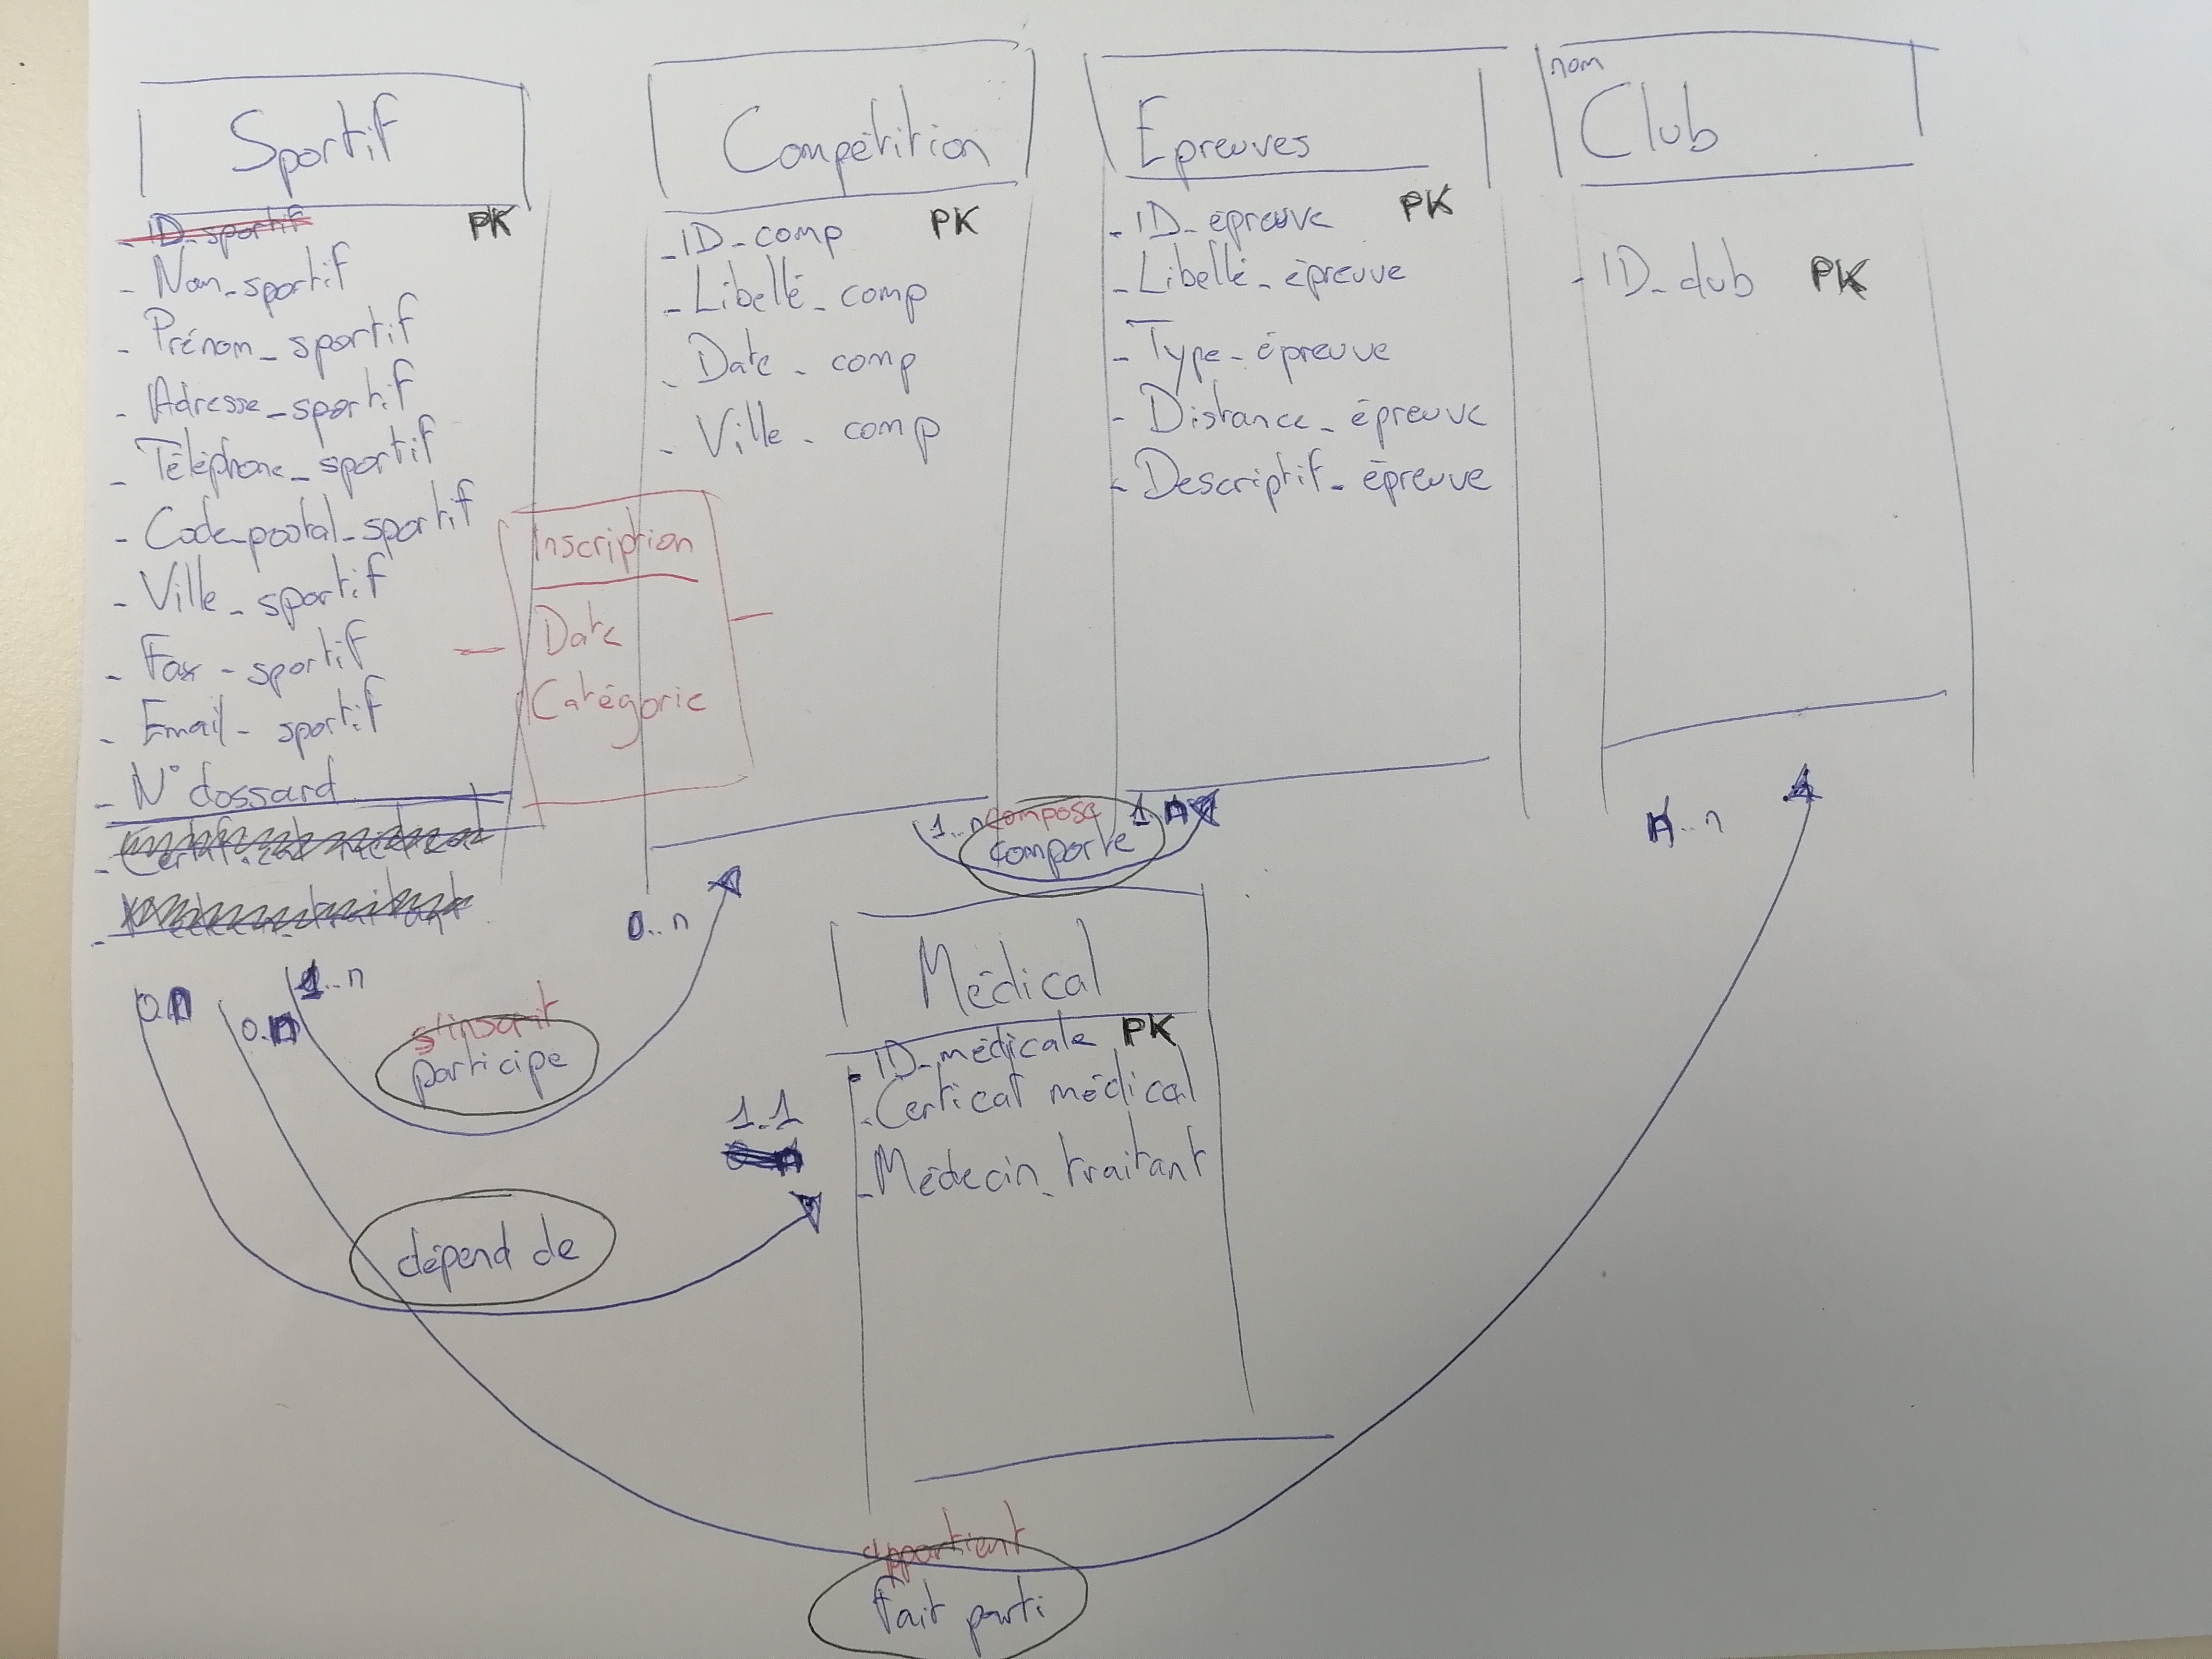 Sportif
ID_sportif PK
- Nom_sportif
- Prénom_sportif
- Adresse_sportif
- Téléphone_sportif
- Code_postal_sportif
- Ville_sportif
- Fax_sportif
- Email_sportif
- N° dossard
Compétition
- ID_comp PK
- Libellé_comp
- Date_comp
- Ville_comp
Inscription
Date
Catégorie
Epreuves
- ID_épreuve PK
- Libellé_épreuve
- Type_épreuve
- Distance_épreuve
- Descriptif_épreuve
nom
Club
- ID_club PK
1..n
compose
comporte
0..n
1..n
s'inscrit
participe
Médical
- ID_médicale PK
- Certicat médical
- Médecin_traitant
1.1
dépend de
appartient
Fait parti